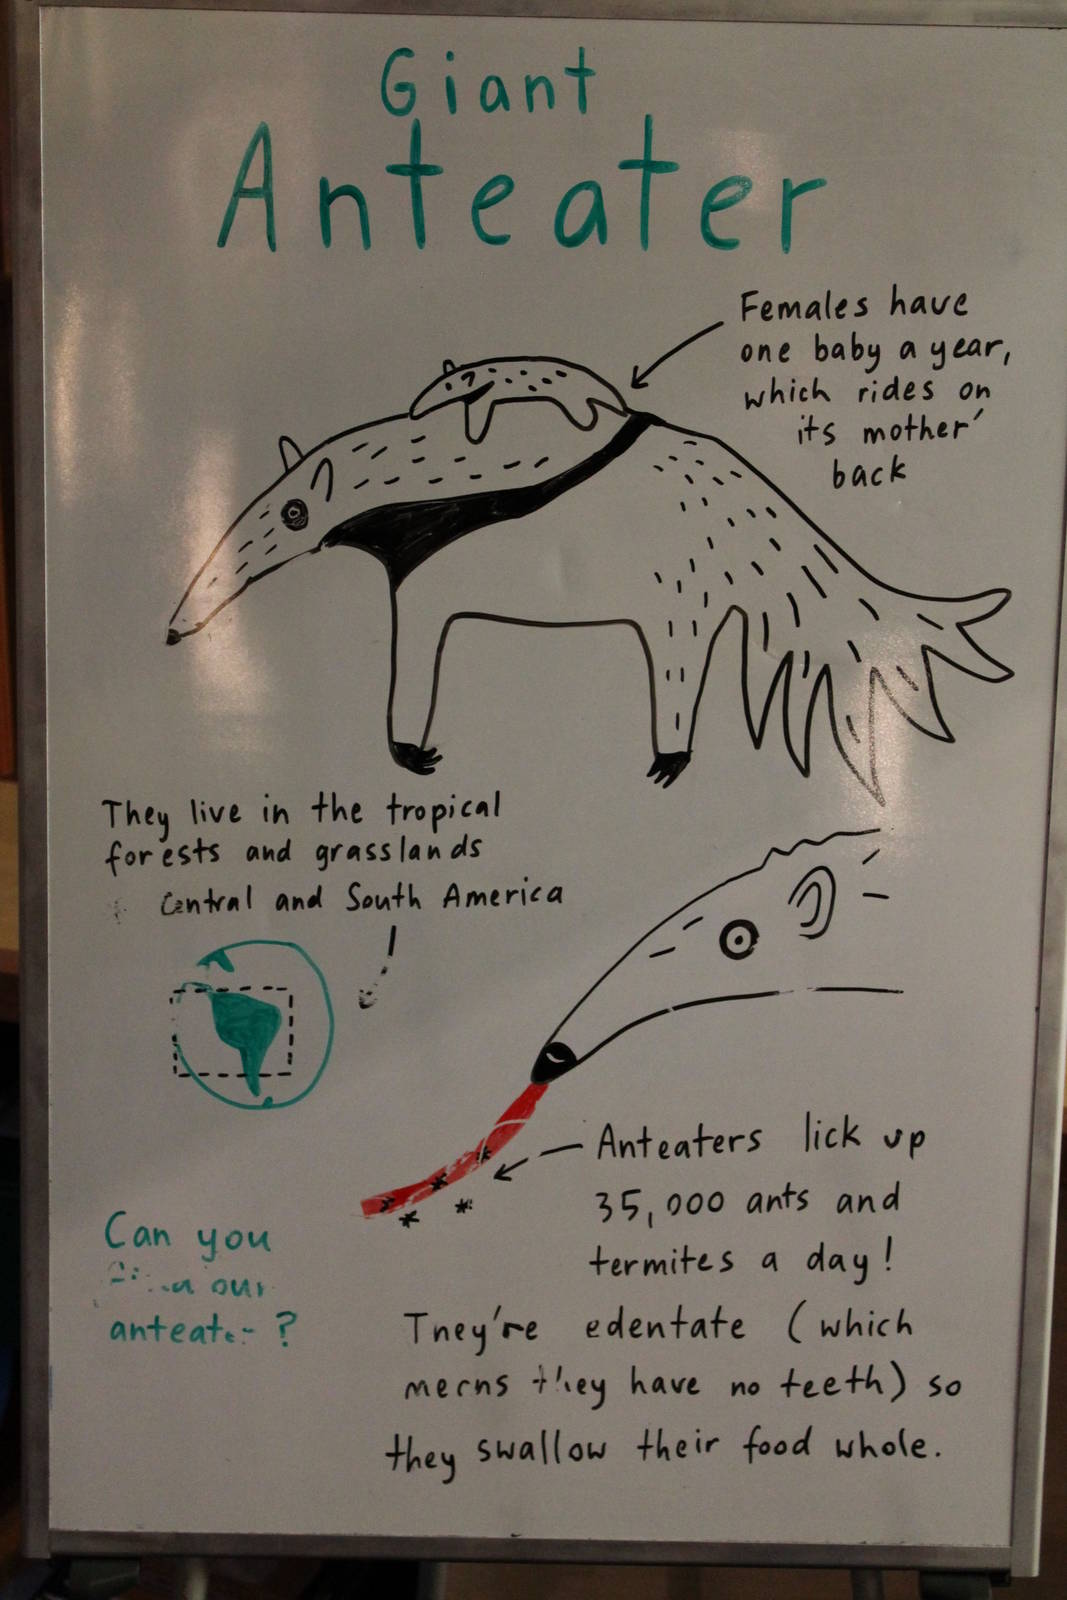 Giant
Anteater
Females have
one baby a year,
which rides on
its mother'
back
They live in the tropical
forests and grasslands
Central and South America
Anteaters lick up
35,000 ants and
termites a day!
They're edentate (which
means they have no teeth) so
they swallow their food whole.
Can you
our
anteater?